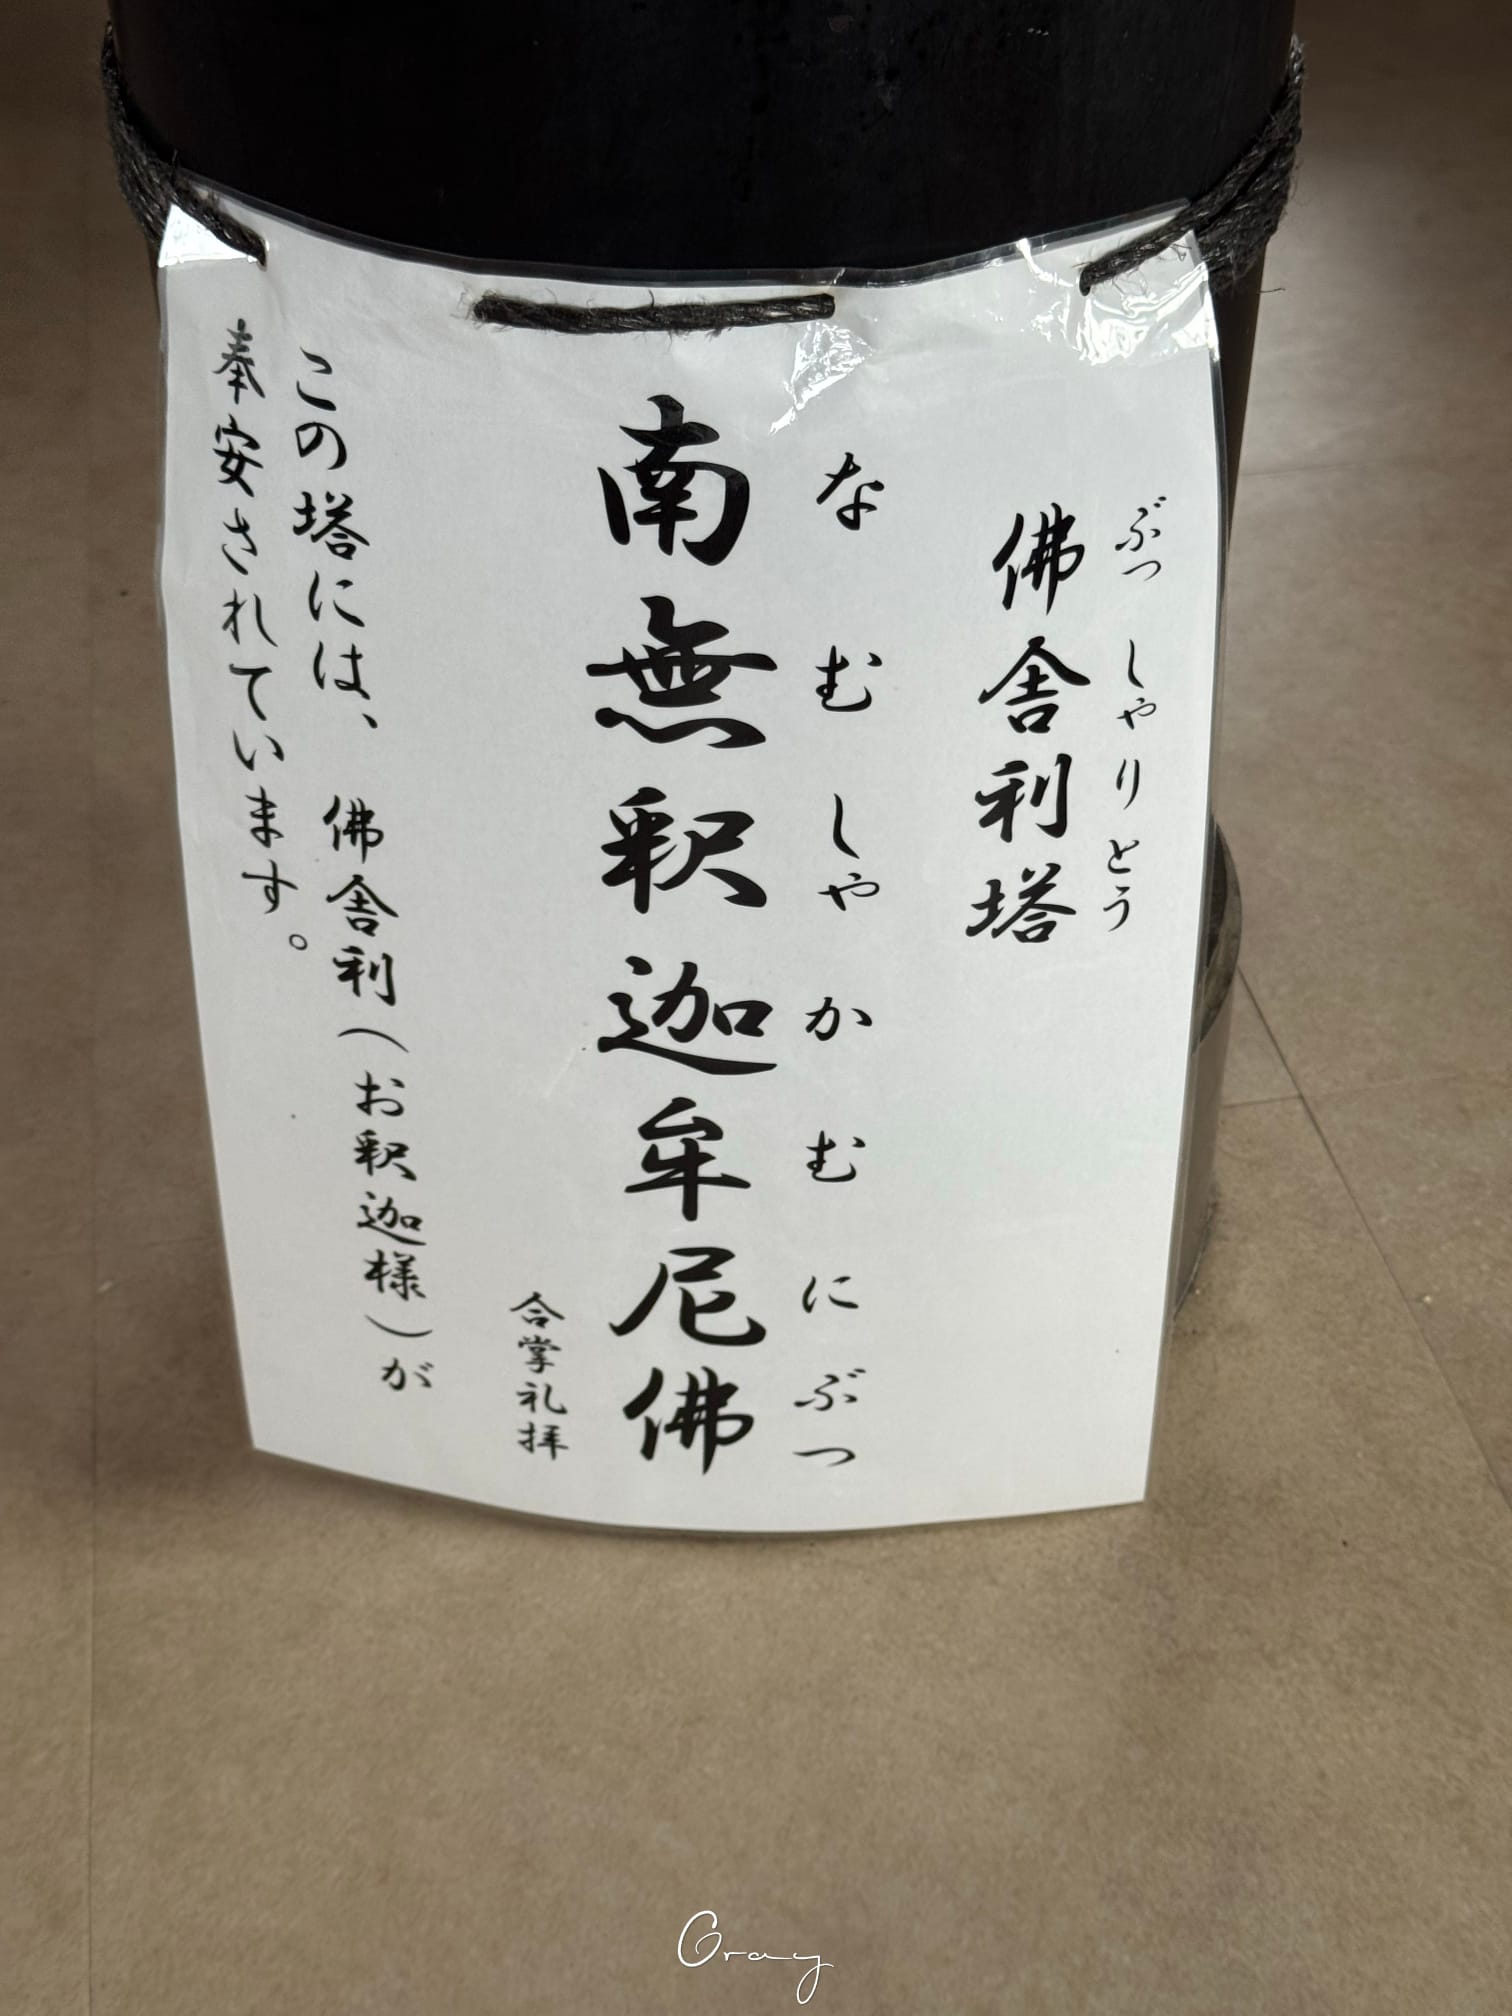 ぶっしゃりとう
佛舎利塔
なむしゃかむにぶつ
南無釈迦牟尼佛
合掌礼拝
この塔には、佛舎利(お釈迦様)が
奉安されています。
Gray